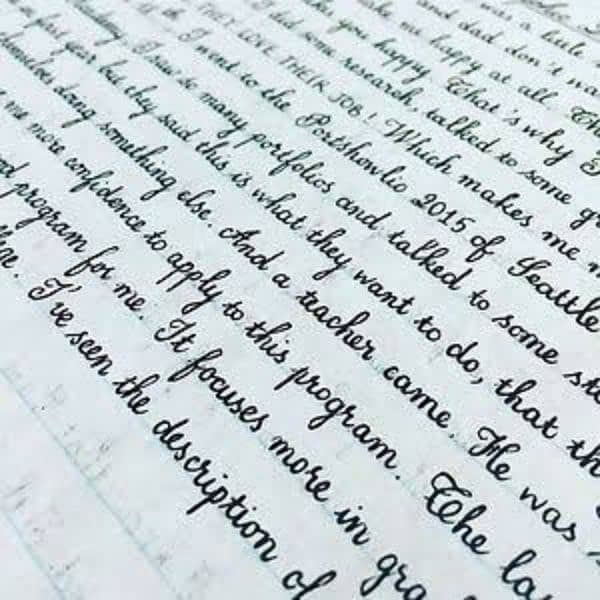 was a little
and dad don't wa
make me happy at all. Th
you happy. That's why I
I did some research, talked to some gr
THEY LOVE THEIR JOB! Which makes me m
I went to the Portshowlio 2015 of Seattle
I saw so many portfolios and talked to some stu
first year but they said this is what they want to do, that th
doing something else. And a teacher came. He was s
me more confidence to apply to this program. The la
program for me. It focuses more in gra
I've seen the description of